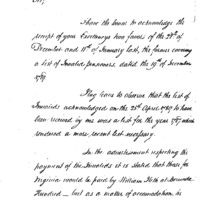 Sir,
I have the honor to acknowledge the
receipt of your Excellency's two favors of the 28th of
December and 11th of January last, the former covering
a list of Invalid pensioners, dated the 19th of December
1789
I beg leave to observe that the list of
Invalids acknowledged on the 23d April 1789 to have
been received by me was a list for the year 1787 which
rendered a more recent list necessary.
In the advertisement respecting the
payment of the Invalids it is stated that those for
Virginia would be paid by William Heth at Bermuda
Hundred — but as a matter of accomodation, in